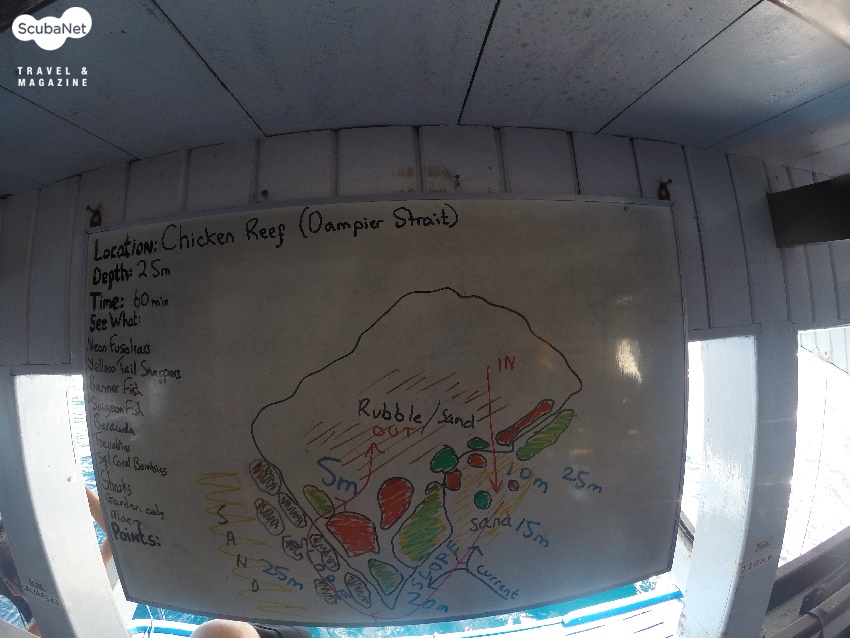 ScubaNet
TRAVEL &
MAGAZINE
Location: Chicken Reef (Dampier Strait)
Depth: 25m
Time: 60min
See What:
Neon Fusoliars
Yellow Tail Snappers
Banner Fish
Surgeon Fish
Baracuda
Trevallies
Soft Coral Bombies
Sharks
Garden eels
Moray
Points:
IN
Rubble/Sand
OUT
5m
10m
25m
Sand 15m
SAND
25m
SLOPE
SLOPE
20m
Current